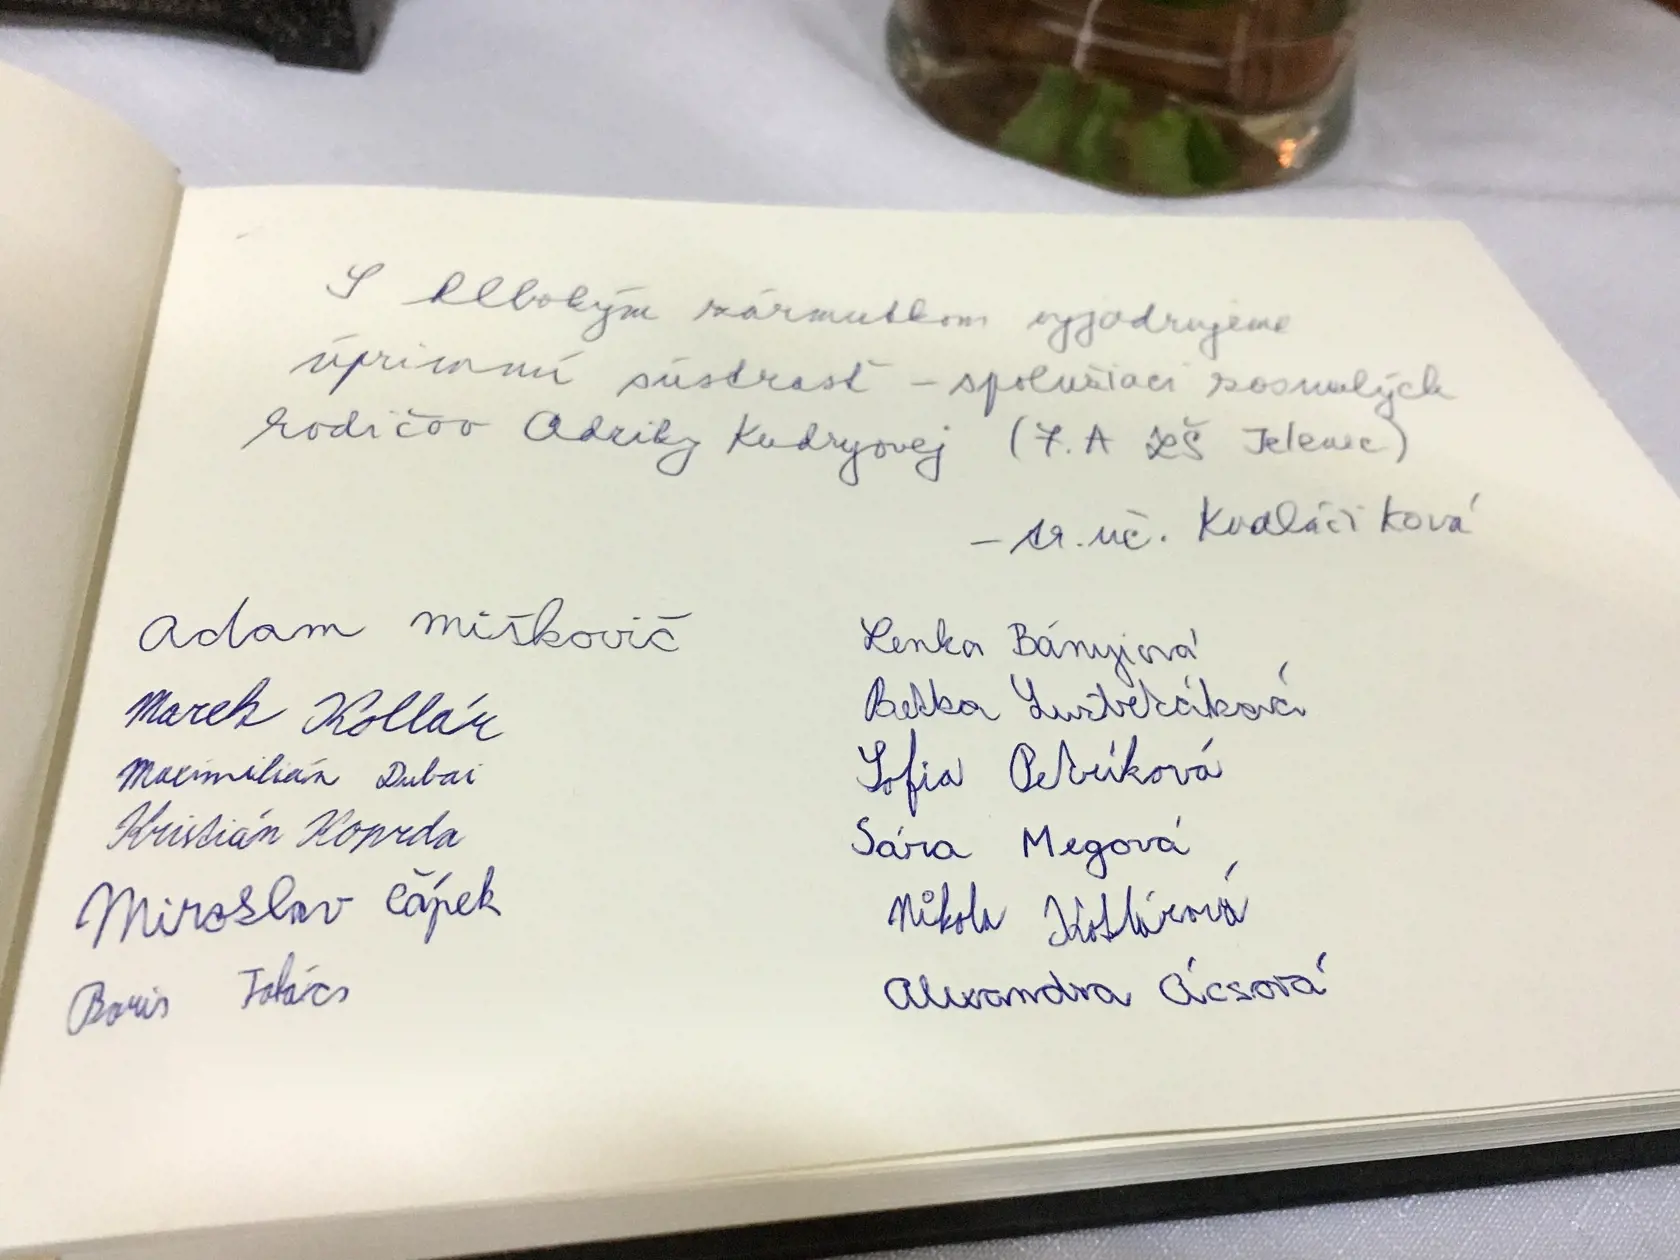 S hlbokým zármutkom vyjadrujeme
úprimnú sústrasť – spolužiaci zosnulých
rodičov Adriky Kudryovej (7. A ZŠ Jelenec)
– tr. uč. Kvaláčiková
Adam Miškovič
Marek Kollár
Maximilián Dubai
Kristián Koprda
Miroslav Čápek
Boris
Lenka Bányiová
Betka
Sofia Petríková
Sára Megová
Nikola Kollárová
Alexandra Ácsová